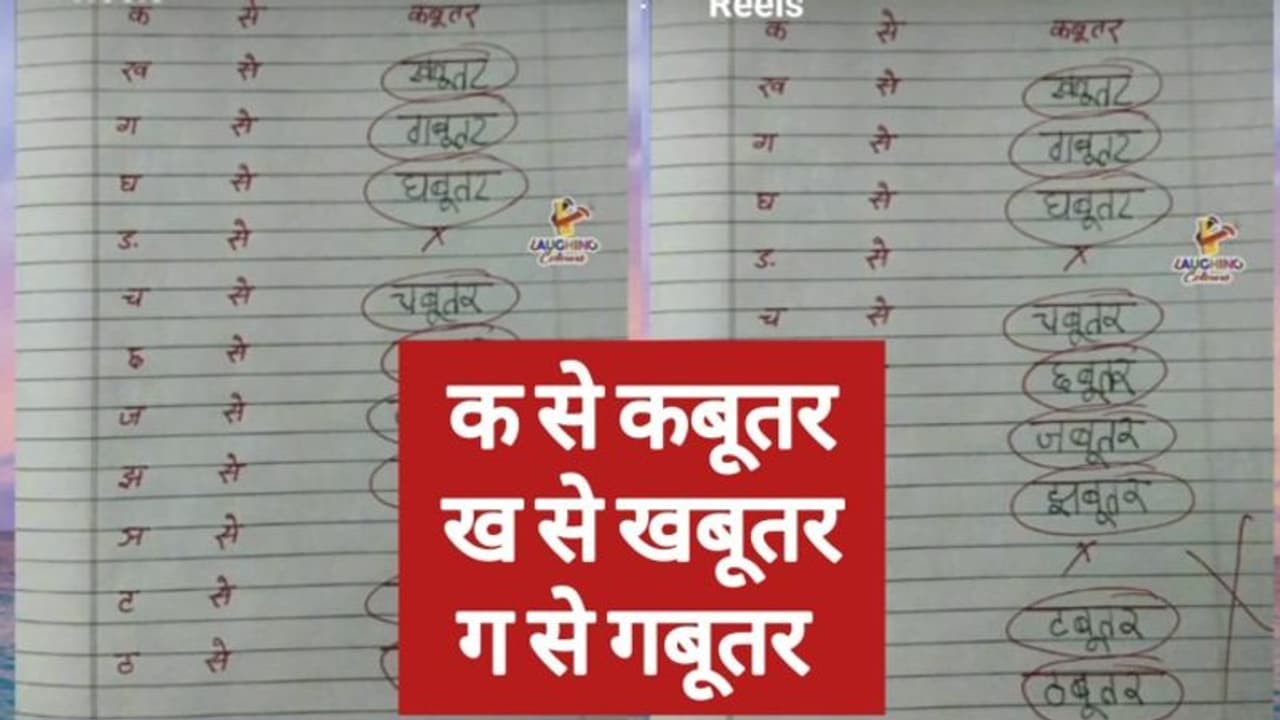 Reels
क से कबूतर
ख से खबूतर
ग से गबूतर
घ से घबूतर
ङ से x
च से चबूतर
छ से
ज से
झ से
ञ से
ट से
ठ से
LAUGHING
Colours
क से कबूतर
ख से खबूतर
ग से गबूतर
घ से घबूतर
ङ से x
च से चबूतर
छबूतर
जबूतर
झबूतर
x
टबूतर
ठबूतर
LAUGHING
Colours
क से कबूतर
ख से खबूतर
ग से गबूतर